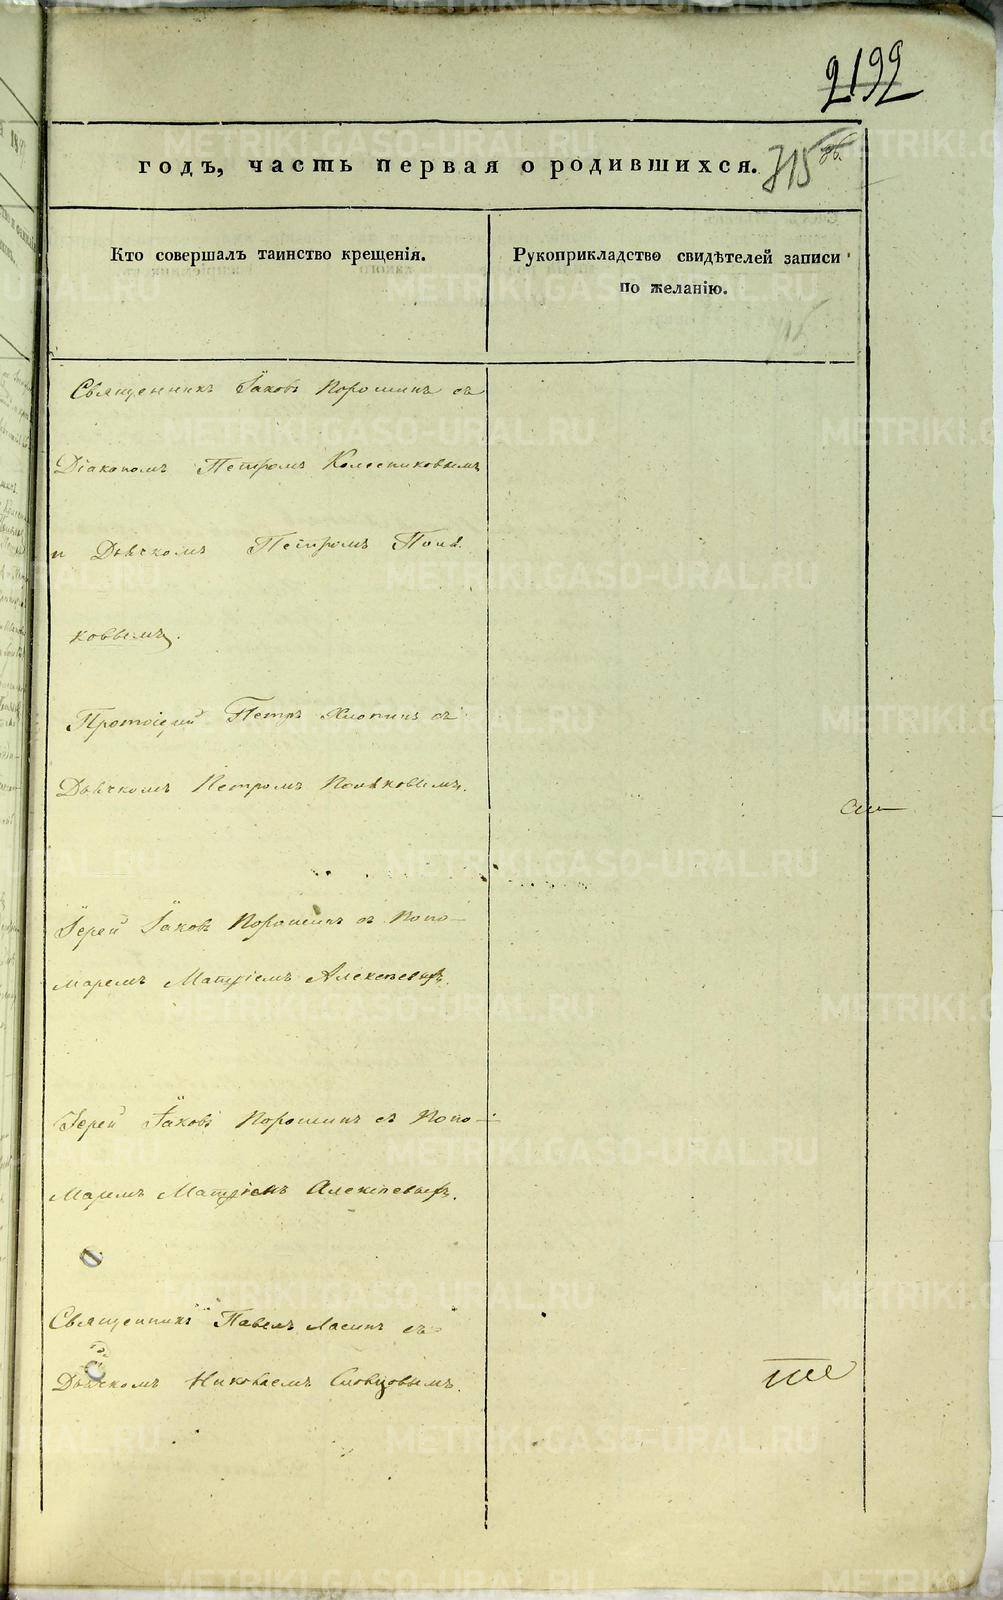 2192
годъ, часть первая о родившихся.
715
Кто совершалъ таинство крещенія.
Рукоприкладство свидѣтелей записи
по желанію.
Священникъ Іаковъ Порошинъ съ
Діакономъ Петромъ Колесниковымъ
и Дьячкомъ Петромъ Поля
ковымъ.
Протоіерей Петръ Хлопинъ съ
Дьячкомъ Петромъ Поляковымъ.
Іерей Іаковъ Порошинъ съ Поно-
маремъ Матфіемъ Алексѣевымъ.
Іерей Іаковъ Порошинъ съ Поно-
маремъ Матфіемъ Алексѣевымъ.
Священникъ Павелъ Ласинъ съ
Дьячкомъ Николаемъ Словцовымъ.
METRIKI.GASO-URAL.RU